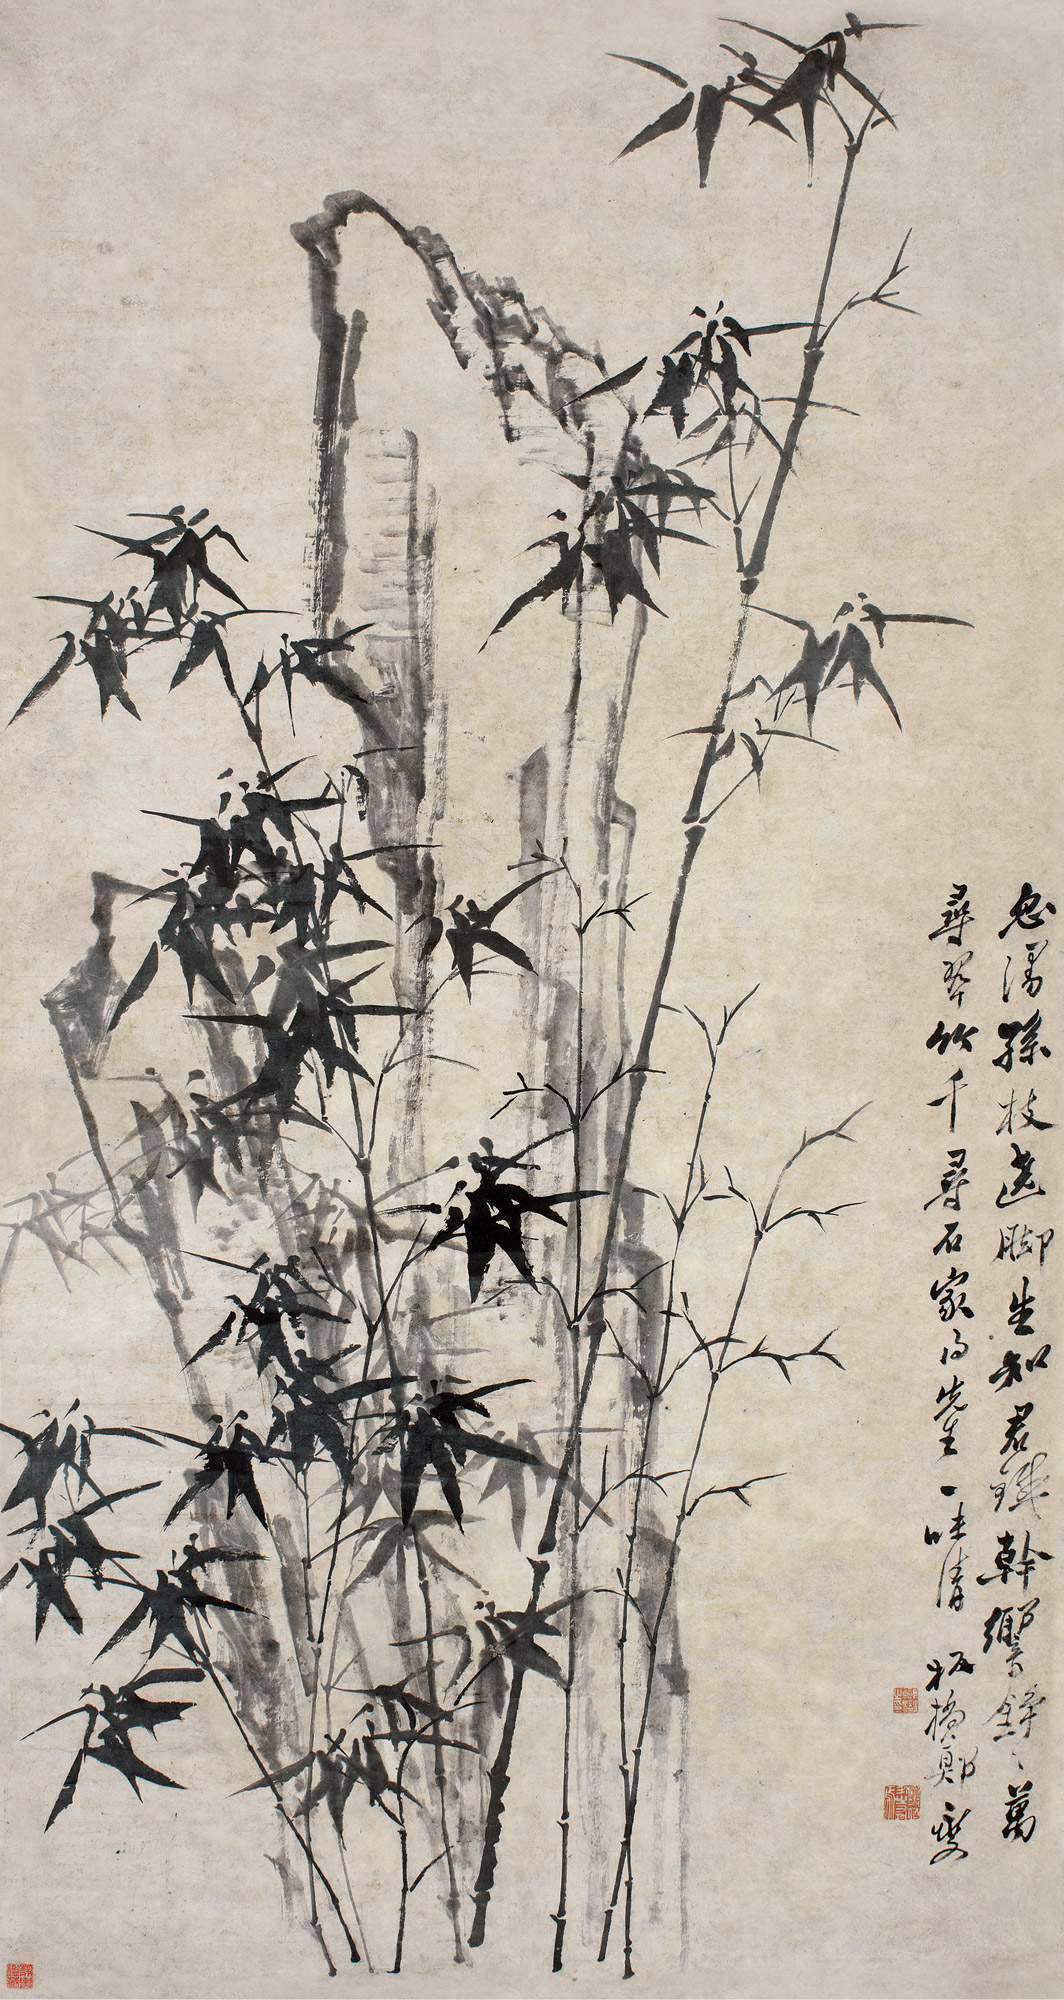 忽漫孫枝迸腳生知君鐵幹響錚〻萬
尋翠竹千尋石家得先生一味清
板橋鄭燮